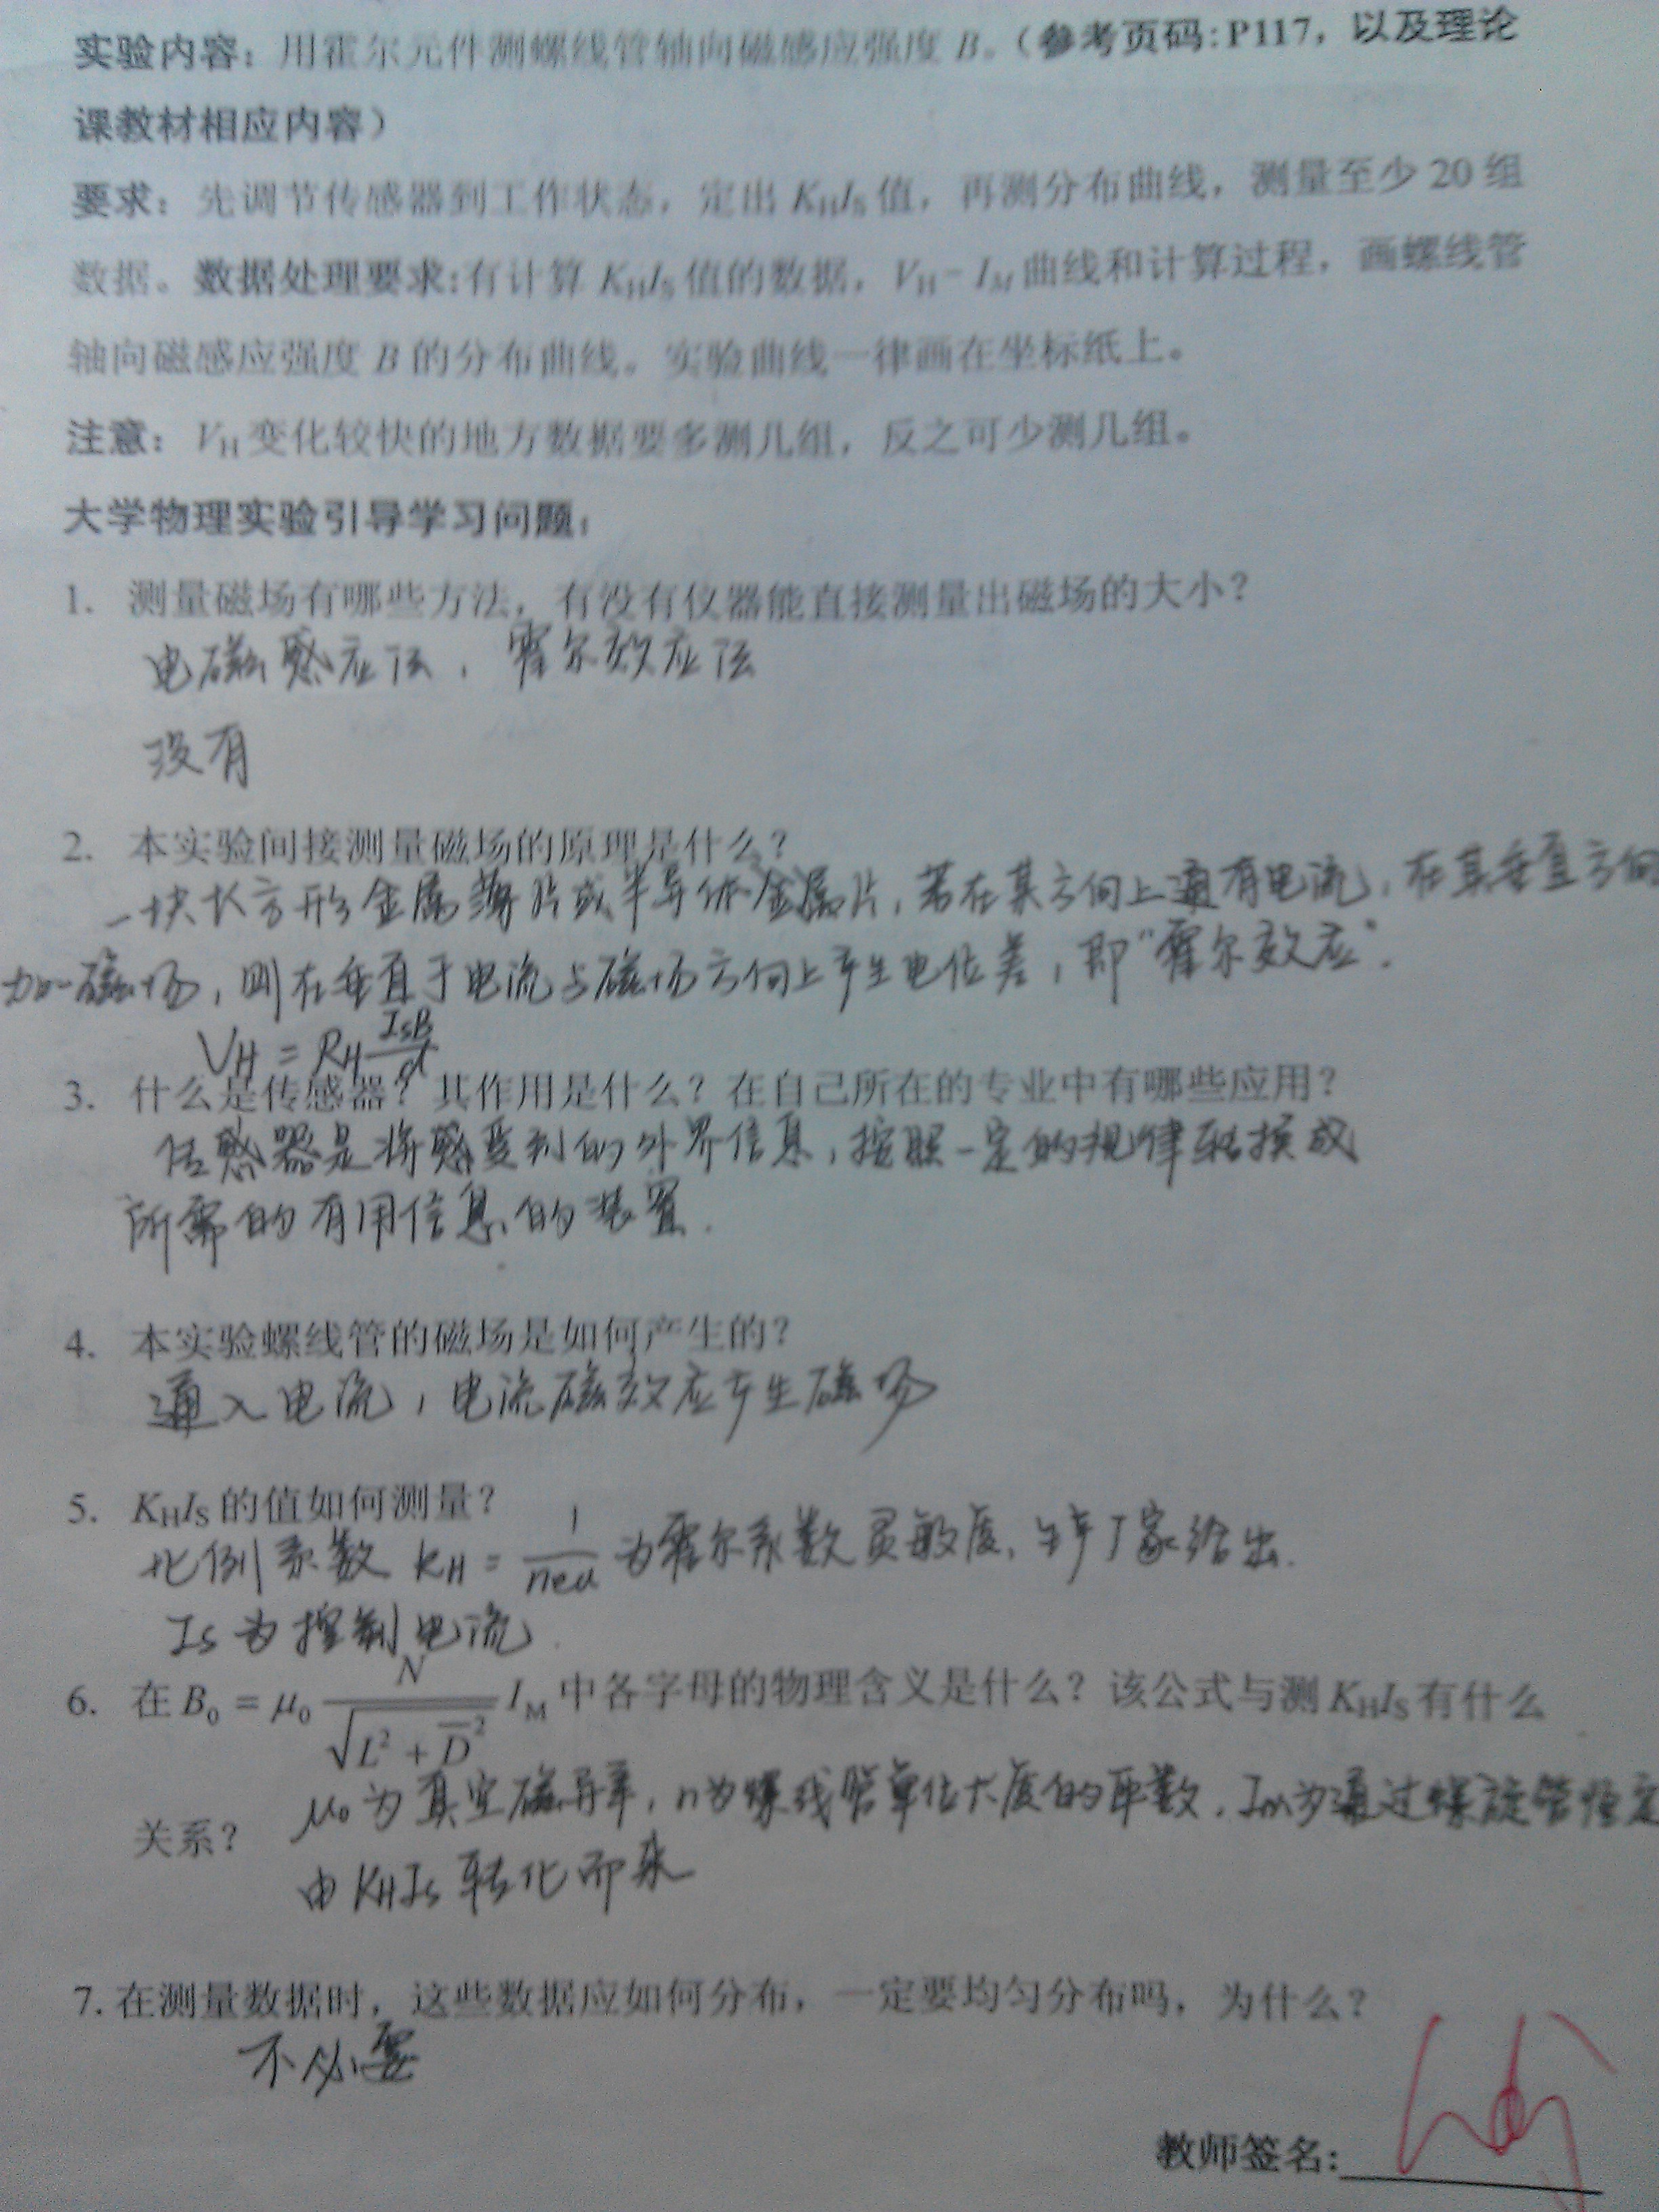 实验内容：用霍尔元件测螺线管轴向磁感应强度 B。（参考页码：P117，以及理论
课教材相应内容）
要求：先调节传感器到工作状态，定出 KHIS 值，再测分布曲线，测量至少 20 组
数据。数据处理要求:有计算 KHIS 值的数据，VH－IM 曲线和计算过程，画螺线管
轴向磁感应强度 B 的分布曲线。实验曲线一律画在坐标纸上。
注意：VH 变化较快的地方数据要多测几组，反之可少测几组。
大学物理实验引导学习问题：
1. 测量磁场有哪些方法，有没有仪器能直接测量出磁场的大小？
电磁感应法，霍尔效应法
没有
2. 本实验间接测量磁场的原理是什么？
一块长方形金属薄片或半导体金属片，若在某方向上通有电流，在其垂直方向
加一磁场，则在垂直于电流与磁场方向上产生电位差，即“霍尔效应”.
VH = RH IsB/d
3. 什么是传感器？其作用是什么？在自己所在的专业中有哪些应用？
传感器是将感受到的外界信息，按照一定的规律转换成
所需的有用信息的装置.
4. 本实验螺线管的磁场是如何产生的？
通入电流，电流磁效应产生磁场
5. KHIS 的值如何测量？
比例系数 KH = 1/ned 为霍尔系数灵敏度，生产厂家给出.
Is 为控制电流.
6. 在 B0 = μ0 N/√(L²+D̅²) IM 中各字母的物理含义是什么？该公式与测 KHIS 有什么
关系？ μ0 为真空磁导率，n为螺线管单位长度的匝数，Im为通过螺旋管恒定
由 KHIs 转化而来
7. 在测量数据时，这些数据应如何分布，一定要均匀分布吗，为什么？
不必要
教师签名：